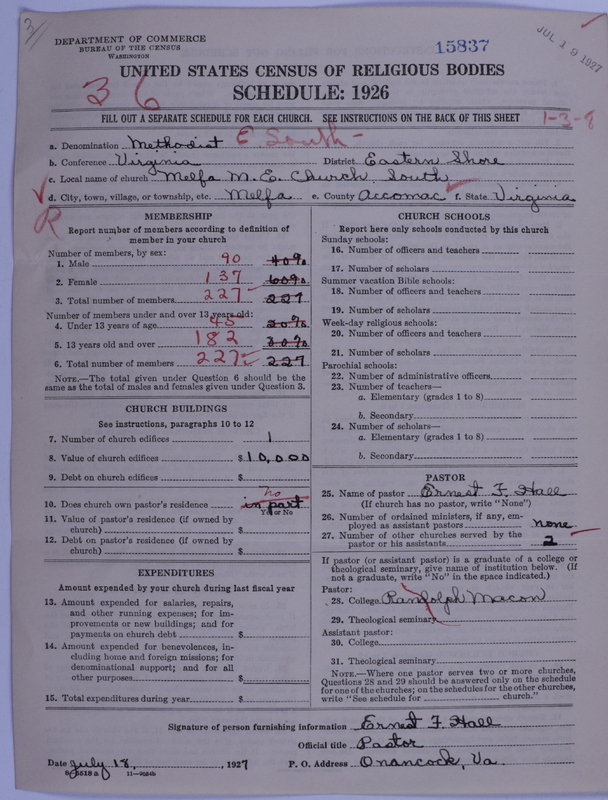 3/
DEPARTMENT OF COMMERCE
BUREAU OF THE CENSUS
WASHINGTON
15837
JUL 19 1927
UNITED STATES CENSUS OF RELIGIOUS BODIES
SCHEDULE: 1926
36
FILL OUT A SEPARATE SCHEDULE FOR EACH CHURCH. SEE INSTRUCTIONS ON THE BACK OF THIS SHEET
1-3-8
a. Denomination Methodist E South-
b. Conference Virginia District Eastern Shore
c. Local name of church Melfa M. E. Church, South
d. City, town, village, or township, etc. Melfa e. County Accomac f. State Virginia
R
MEMBERSHIP
Report number of members according to definition of
member in your church
Number of members, by sex:
1. Male 90 40%
2. Female 137 60%
3. Total number of members 227 227
Number of members under and over 13 years old:
4. Under 13 years of age 45 20%
5. 13 years old and over 182 80%
6. Total number of members 227 227
NOTE.—The total given under Question 6 should be the
same as the total of males and females given under Question 3.
CHURCH BUILDINGS
See instructions, paragraphs 10 to 12
7. Number of church edifices 1
8. Value of church edifices $10,000
9. Debt on church edifices $
no
10. Does church own pastor's residence in part
Yes or No
11. Value of pastor's residence (if owned by
church) $
12. Debt on pastor's residence (if owned by
church) $
EXPENDITURES
Amount expended by your church during last fiscal year
13. Amount expended for salaries, repairs,
and other running expenses; for im-
provements or new buildings; and for
payments on church debt $
14. Amount expended for benevolences, in-
cluding home and foreign missions; for
denominational support; and for all
other purposes $
15. Total expenditures during year $
CHURCH SCHOOLS
Report here only schools conducted by this church
Sunday schools:
16. Number of officers and teachers
17. Number of scholars
Summer vacation Bible schools:
18. Number of officers and teachers
19. Number of scholars
Week-day religious schools:
20. Number of officers and teachers
21. Number of scholars
Parochial schools:
22. Number of administrative officers
23. Number of teachers—
a. Elementary (grades 1 to 8)
b. Secondary
24. Number of scholars—
a. Elementary (grades 1 to 8)
b. Secondary
PASTOR
25. Name of pastor Ernest F. Hall
(If church has no pastor, write "None")
26. Number of ordained ministers, if any, em-
ployed as assistant pastors none
27. Number of other churches served by the
pastor or his assistants 2
If pastor (or assistant pastor) is a graduate of a college or
theological seminary, give name of institution below. (If
not a graduate, write "No" in the space indicated.)
Pastor:
28. College Randolph Macon
29. Theological seminary
Assistant pastor:
30. College
31. Theological seminary
NOTE.—Where one pastor serves two or more churches,
Questions 28 and 29 should be answered only on the schedule
for one of the churches; on the schedules for the other churches,
write "See schedule for church."
Signature of person furnishing information Ernest F. Hall
Official title Pastor
Date July 18, 1927 P. O. Address Onancock, Va.